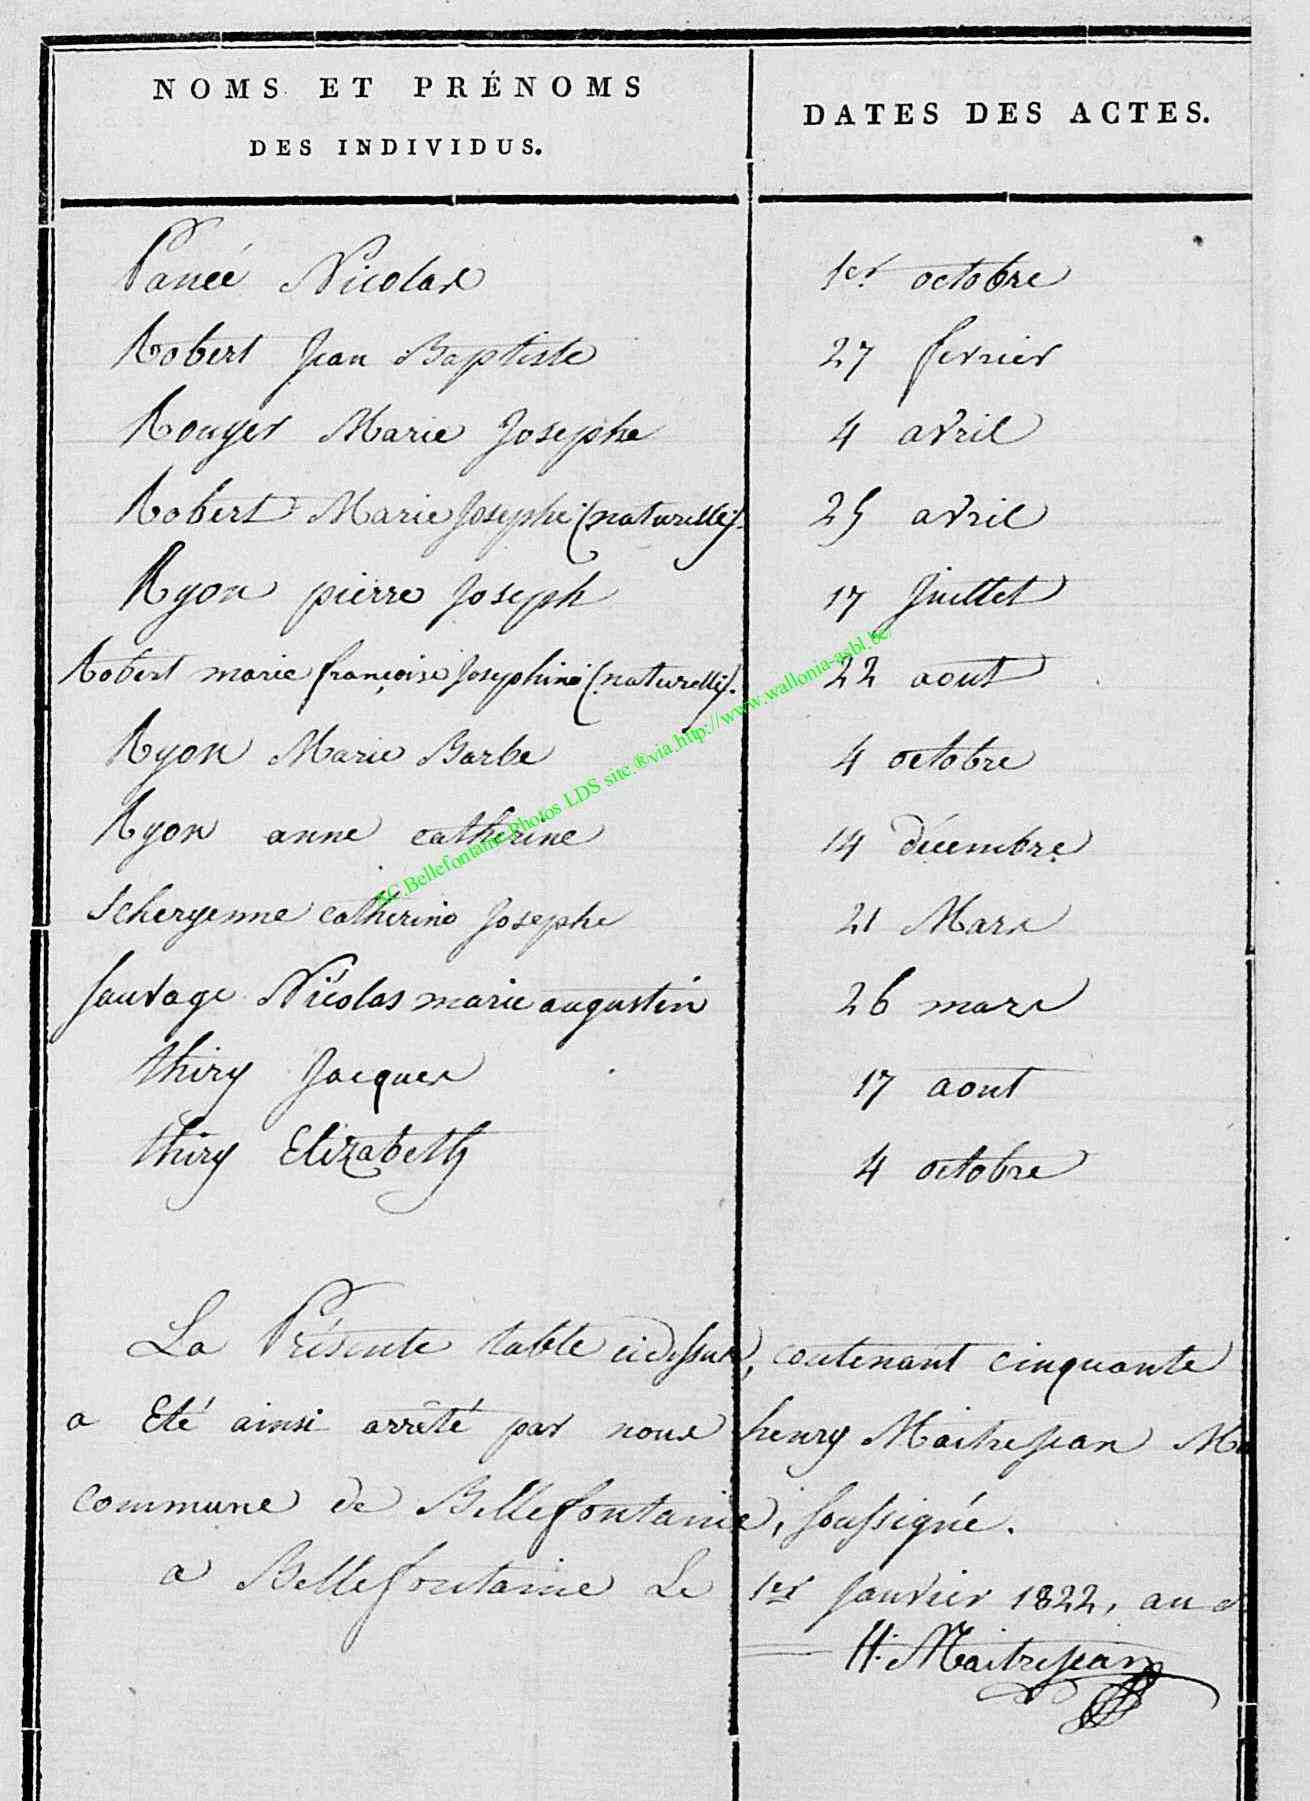 NOMS ET PRÉNOMS
DES INDIVIDUS.
DATES DES ACTES.
Pancé Nicolas 1er octobre
Robert Jean Baptiste 27 fevrier
Rouyer Marie Josephe 4 avril
Robert Marie Josephe (naturelle). 25 avril
Ryon pierre Joseph 17 Juillet
Robert marie françoise Josephine (naturelle). 22 aout
Ryon Marie Barbe 4 octobre
Ryon anne catherine 14 décembre
Scheryenne catherine Josephe 21 Mars
Sauvage Nicolas marie augustin 26 mars
thiry Jacques 17 aout
thiry Elizabeth 4 octobre
AC.Bellefontaine.Photos LDS site.®via.http://www.wallonia-asbl.be/
La Présente table cidessus, contenant cinquante
a Eté ainsi arrêté par nous henry Maitrejean
commune de Bellefontaine, soussigné.
a Bellefontaine Le 1er Janvier 1822, au
H. Maitrejean